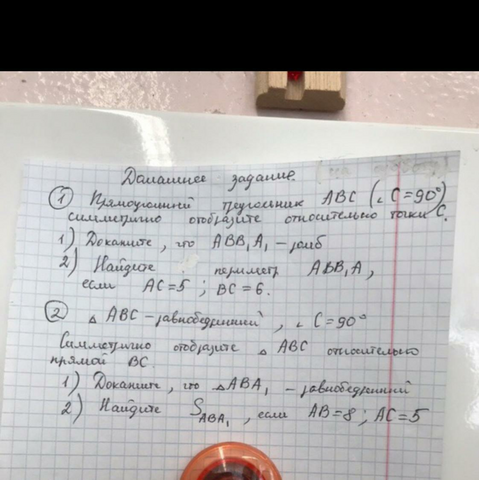 Домашнее задание.
① Прямоугольный треугольник ABC (∠C=90°)
симметрично отобразите относительно точки C.
1) Докажите, что ABB₁A₁ – ромб
2) Найдите периметр ABB₁A,
если AC=5; BC=6.
② △ ABC – равнобедренный, ∠C=90°
Симметрично отобразите △ ABC относительно
прямой BC.
1) Докажите, что △ABA₁ – равнобедренный
2) Найдите S_ABA₁, если AB=8; AC=5